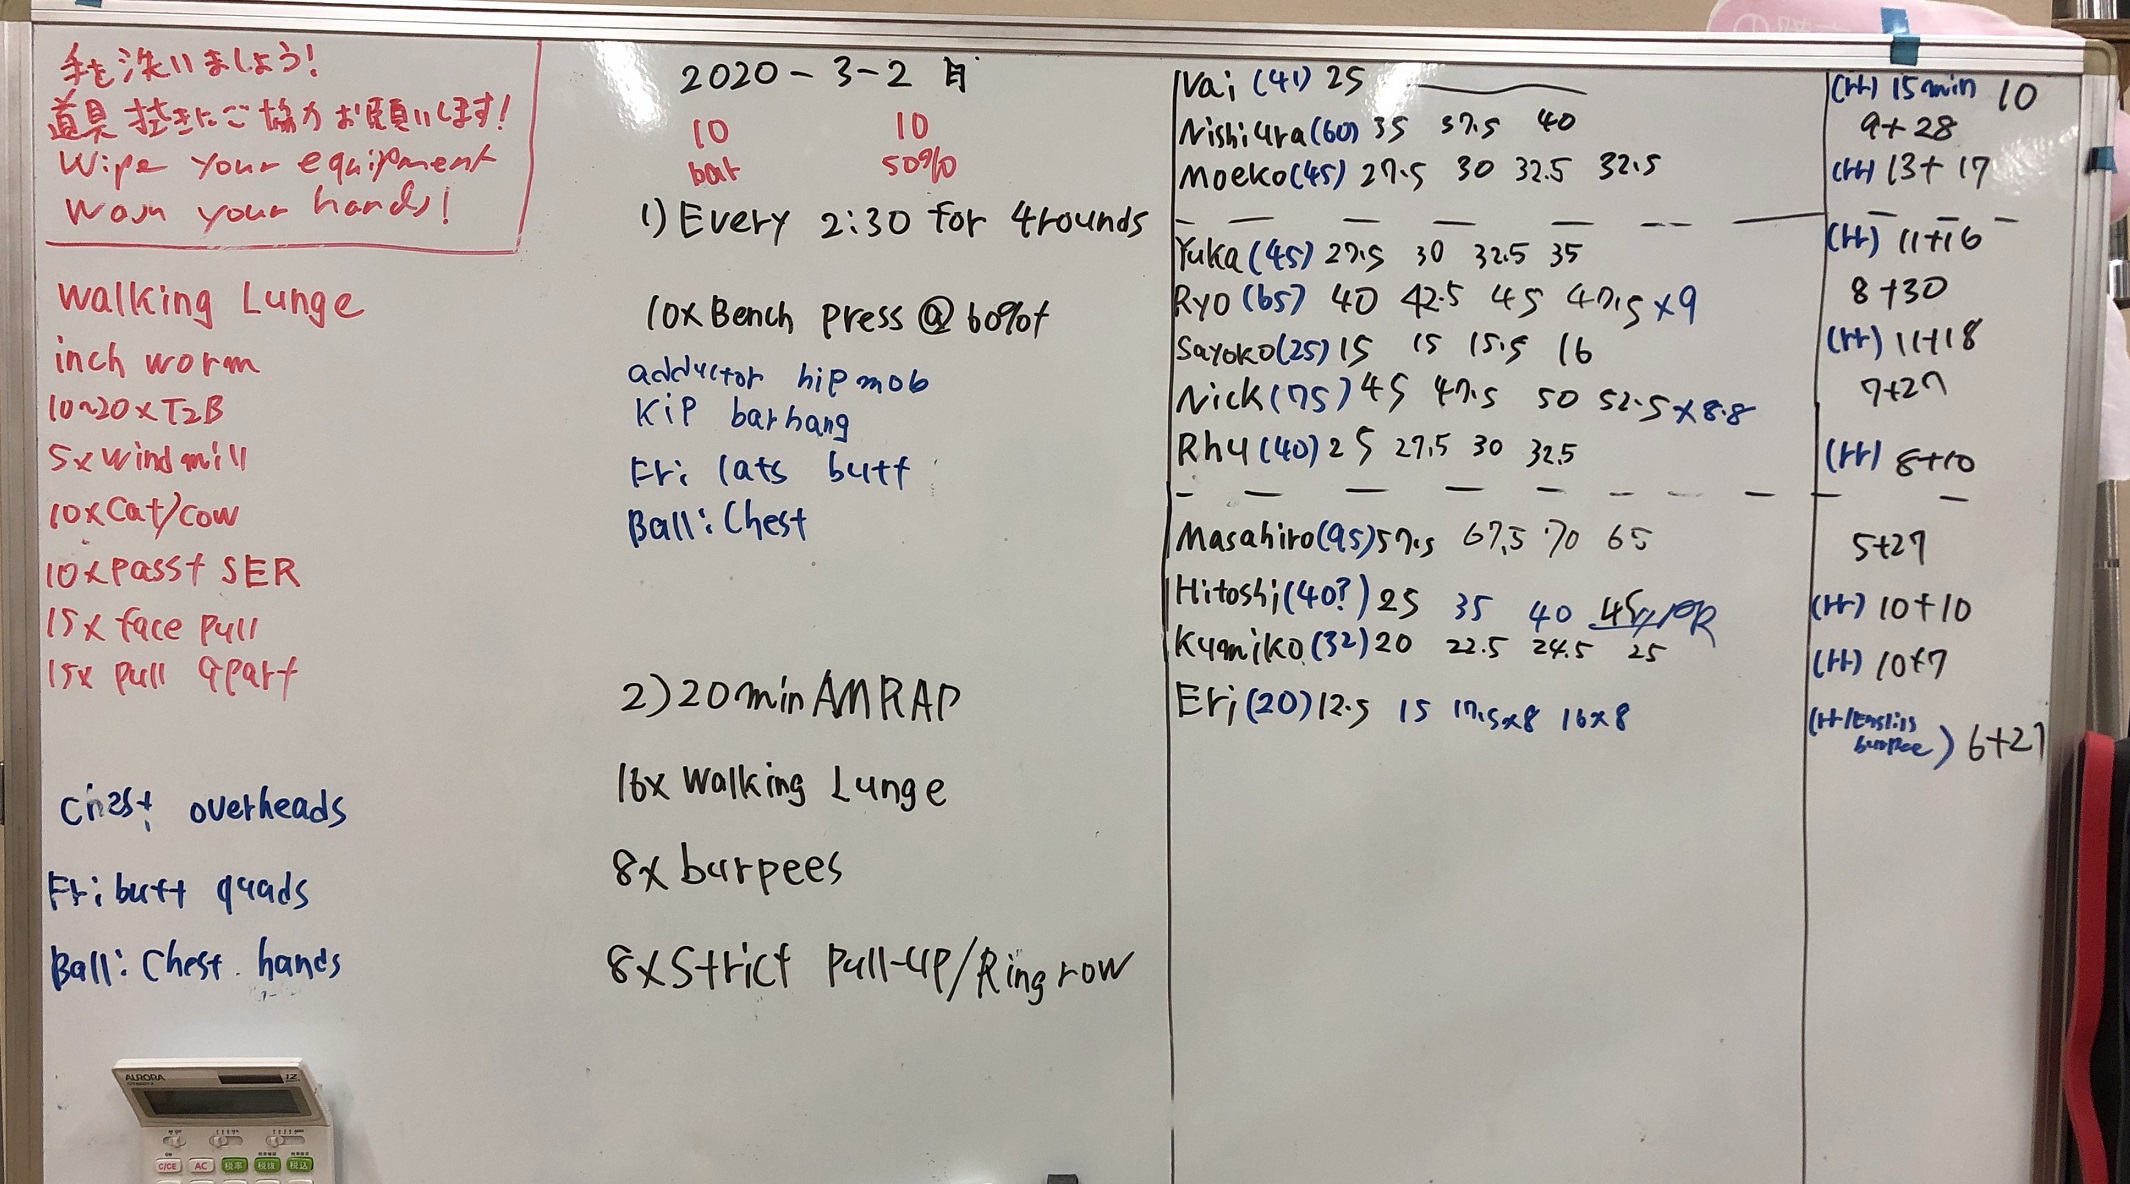 手を洗いましょう!
道具拭きにご協力お願いします!
Wipe your equipment
Wash your hands!
walking Lunge
inch worm
10~20xT2B
5xwindmill
10xCat/cow
10xpasst SER
15x face pull
15x pull apart
Chest overheads
Fri butt quads
Ball: Chest. hands
2020-3-2 月
10 10
bar 50%
1) Every 2:30 for 4rounds
10x Bench press @ 60%↑
adductor hip mob
Kip bar hang
Fri lats butt
Ball: Chest
2) 20min AMRAP
16x Walking Lunge
8x burpees
8x Strict Pull-up/Ring row
Vai (41) 25
Nishiura(60) 35 37.5 40
Moeko(45) 27.5 30 32.5 32.5
Yuka (45) 27.5 30 32.5 35
Ryo (65) 40 42.5 45 47.5 x9
Sayoko(25) 15 15 15.5 16
Nick (75) 45 47.5 50 52.5 x8.8
Rhu (40) 25 27.5 30 32.5
Masahiro(95) 57.5 67.5 70 65
Hitoshi(40?) 25 35 40 45 PR
Kumiko (32) 20 22.5 24.5 25
Eri (20) 12.5 15 17.5x8 16x8
(rr) 15min 10
9+28
(rr) 13+17
(rr) 11+16
8+30
(rr) 11+18
7+27
(rr) 8+10
5+27
(rr) 10+10
(rr) 10+7
(rr/English burpee) 6+27
AURORA
12
C/CE AC 税率 税抜 税込